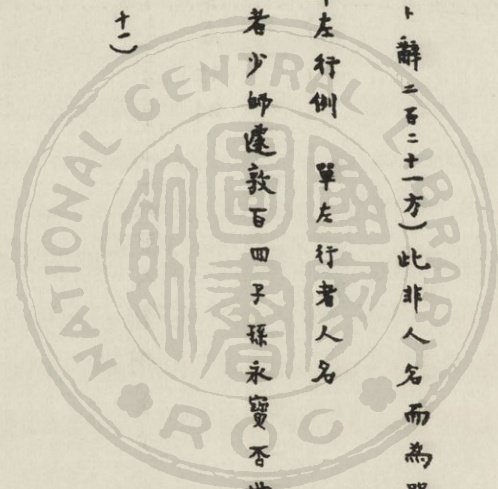 卜辭二百二十一方）此非人名而為
左行例　單左行者人名
者少師遽敦百四子孫永寶否
十一）
NATIONAL CENTRAL LIBRARY
ROC
國家圖書館